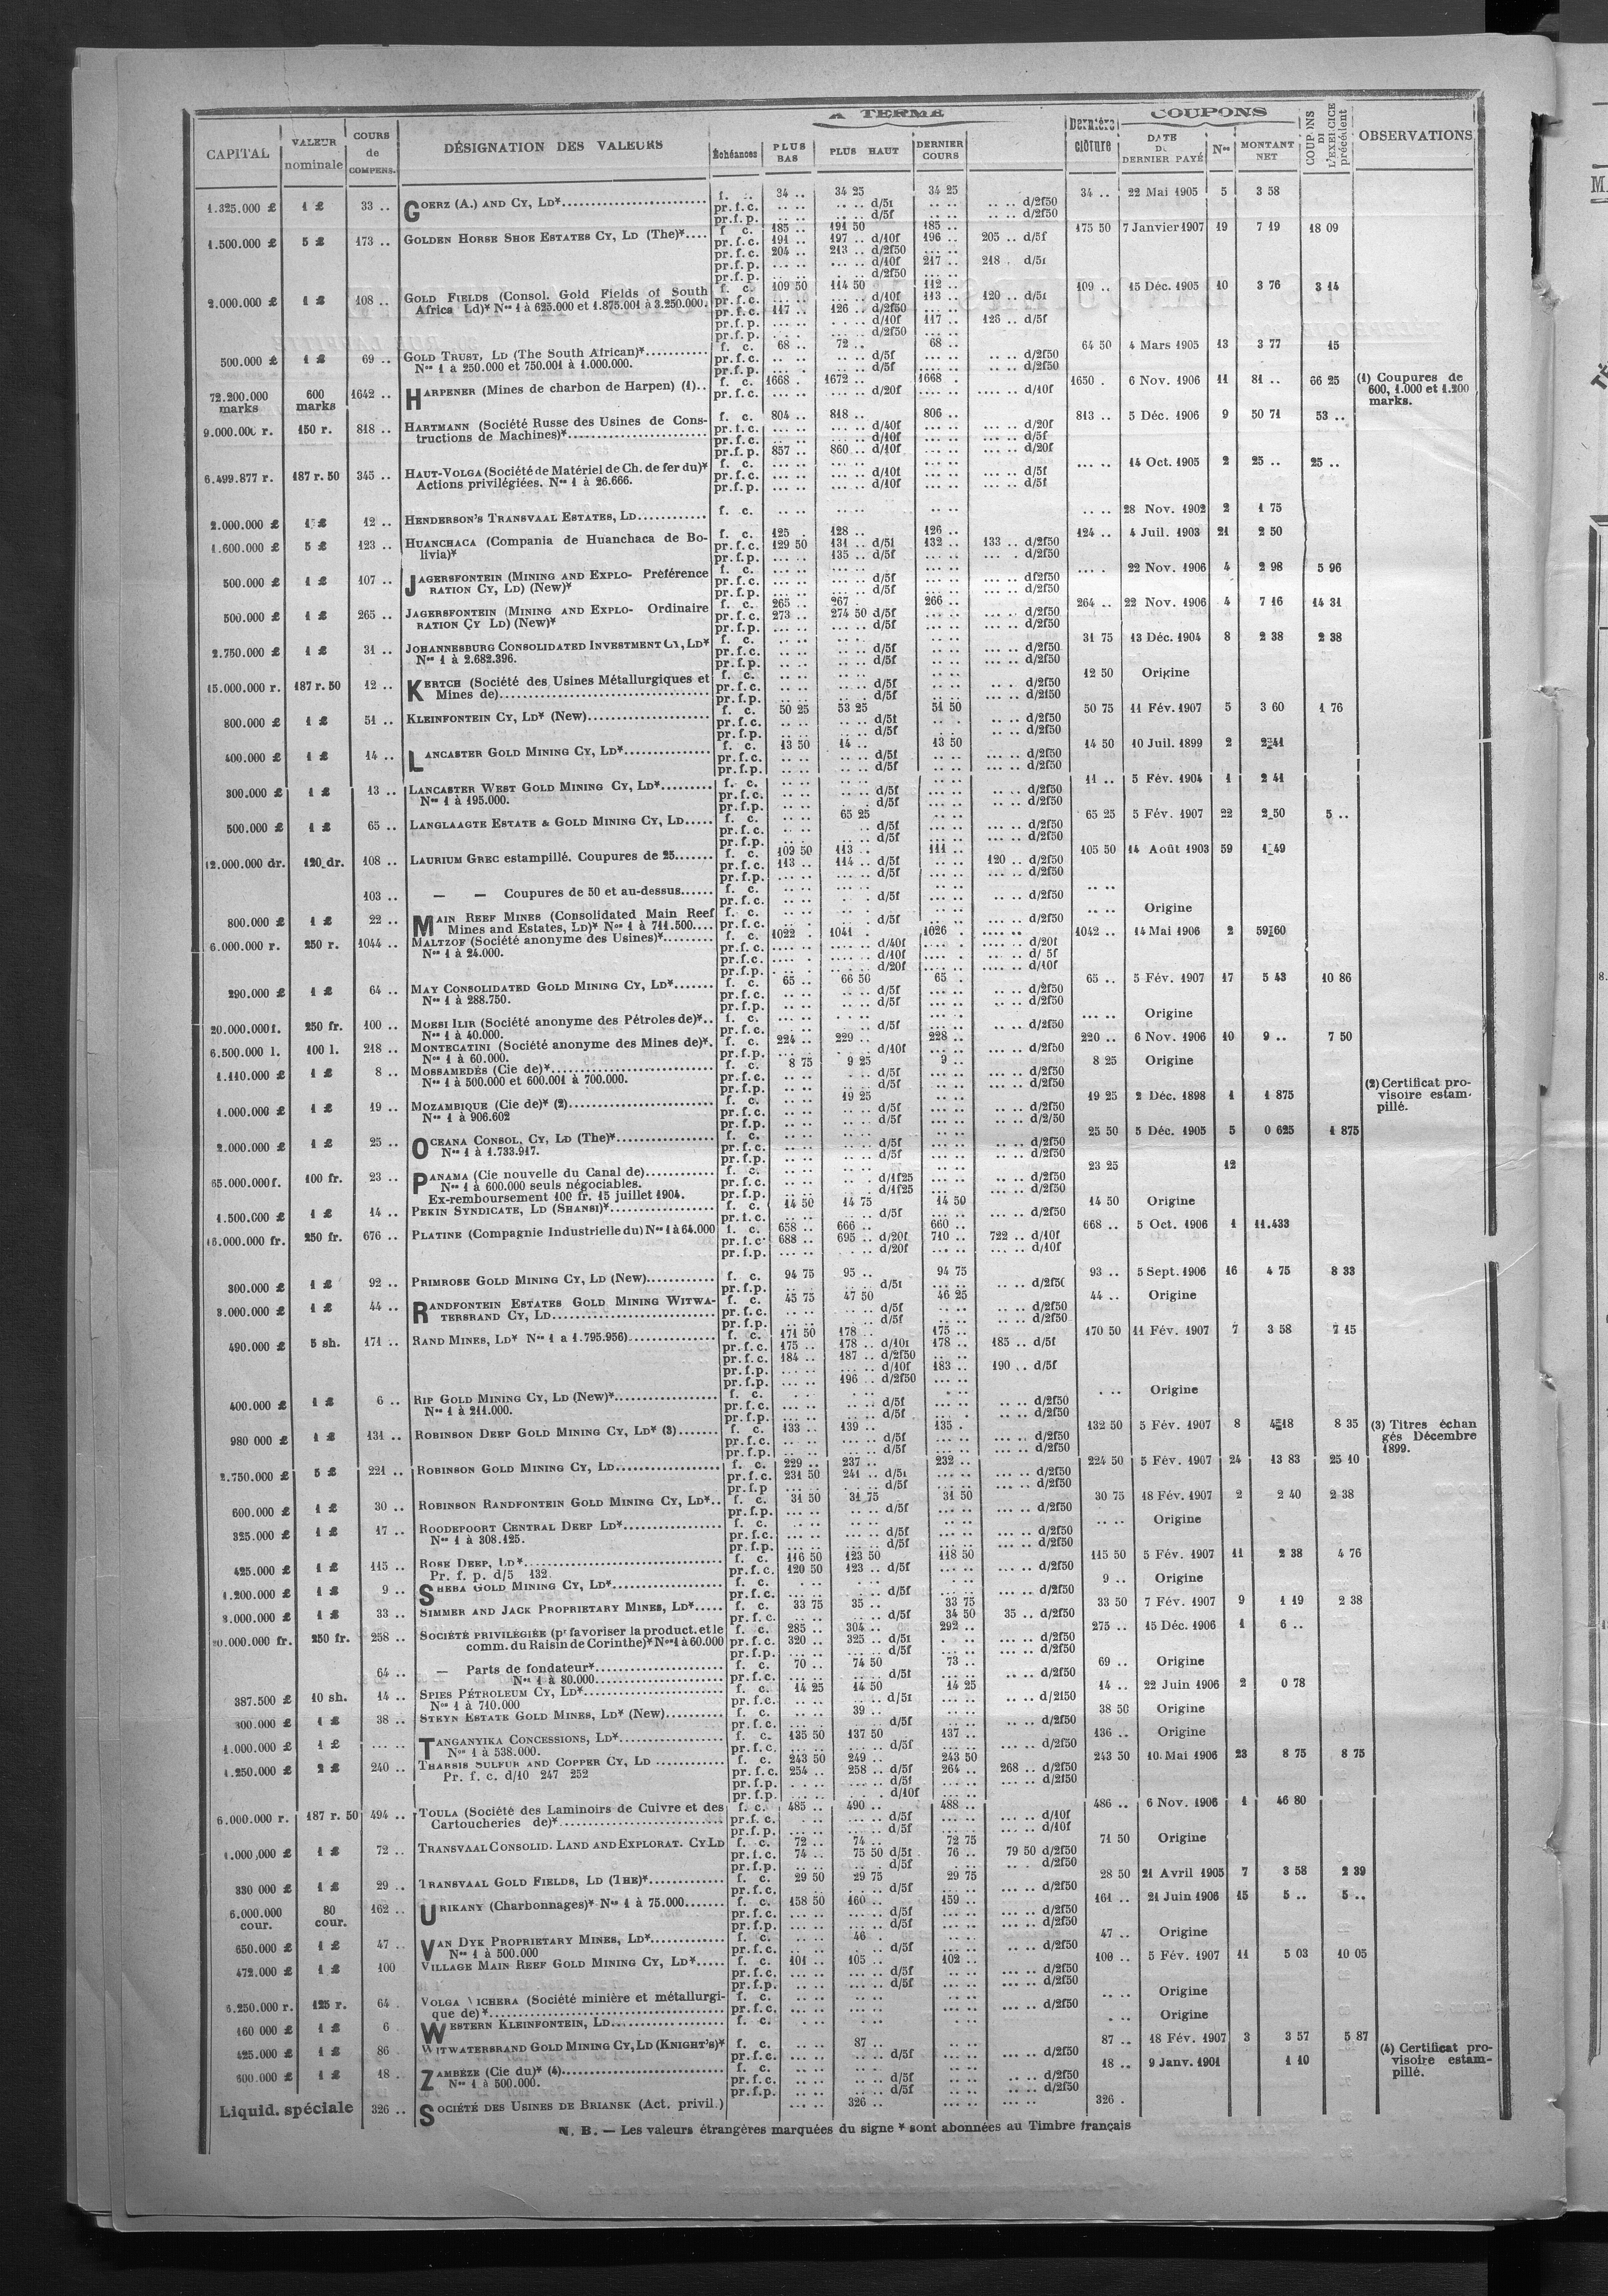 A TERME
COUPONS
CAPITAL
VALEUR nominale
COURS de COMPENS.
DÉSIGNATION DES VALEURS
Échéances
PLUS BAS
PLUS HAUT
DERNIER COURS
Dernière clôture
DATE DU DERNIER PAYÉ
Nos
MONTANT NET
COUPONS DE L'EXERCICE précédent
OBSERVATIONS
1.325.000 £ 1 £ 33 .. GOERZ (A.) AND CY, LD* f. c. 34 .. 34 25 34 25 34 .. 22 Mai 1905 5 3 58
pr. f. c. .. .. .. .. d/5f .. .. .. .. d/2f50
pr. f. p. .. .. .. .. d/5f .. .. .. .. d/2f50
1.500.000 £ 5 £ 173 .. GOLDEN HORSE SHOE ESTATES CY, LD (The)* f. c. 185 .. 191 50 185 .. 175 50 7 Janvier 1907 19 7 19 18 09
pr. f. c. 191 .. 197 .. d/10f 196 .. 205 .. d/5f
pr. f. c. 204 .. 213 .. d/2f50
pr. f. p. ... .. ... .. d/10f 217 .. 218 . d/5f
pr. f. p. d/2f50
2.000.000 £ 1 £ 108 .. GOLD FIELDS (Consol. Gold Fields of South f. c. 109 50 114 50 112 .. 109 .. 15 Déc. 1905 10 3 76 3 14
Africa Ld)* Nos 1 à 625.000 et 1.875.001 à 3.250.000. pr. f. c. d/10f 113 .. 120 .. d/5f
pr. f. c. 117 .. 126 .. d/2f50
pr. f. p. d/10f 117 .. 126 .. d/5f
pr. f. p. d/2f50
500.000 £ 1 £ 69 .. GOLD TRUST, LD (The South African)* f. c. 68 .. 72 .. 68 .. 64 50 4 Mars 1905 13 3 77 15
Nos 1 à 250.000 et 750.001 à 1.000.000. pr. f. c. d/5f d/2f50
pr. f. p. d/5f d/2f50
72.200.000 marks 600 marks 1642 .. HARPENER (Mines de charbon de Harpen) (1).. f. c. 1668 . 1672 .. 1668 . 1650 . 6 Nov. 1906 11 81 .. 66 25 (1) Coupures de 600, 1.000 et 1.200 marks.
pr. f. c. d/20f d/10f
9.000.000 r. 150 r. 818 .. HARTMANN (Société Russe des Usines de Cons- f. c. 804 .. 818 .. 806 .. 813 .. 5 Déc. 1906 9 50 71 53 ..
tructions de Machines)* pr. f. c. d/40f d/20f
pr. f. c. d/10f d/5f
pr. f. p. 857 .. 860 .. d/40f d/20f
6.499.877 r. 187 r. 50 345 .. HAUT-VOLGA (Société de Matériel de Ch. de fer du)* f. c. 14 Oct. 1905 2 25 .. 25 ..
Actions privilégiées. Nos 1 à 26.666. pr. f. c. d/10f d/5f
pr. f. p. d/10f d/5f
2.000.000 £ 1 £ 12 .. HENDERSON'S TRANSVAAL ESTATES, LD f. c. 28 Nov. 1902 2 1 75
1.600.000 £ 5 £ 123 .. HUANCHACA (Compania de Huanchaca de Bo- f. c. 125 . 128 .. 126 .. 124 .. 4 Juil. 1903 21 2 50
livia)* pr. f. c. 129 50 131 .. d/5f 132 .. 133 .. d/2f50
pr. f. p. 135 .. d/5f d/2f50
500.000 £ 1 £ 107 .. JAGERSFONTEIN (MINING AND EXPLO- Préférence f. c. 22 Nov. 1906 4 2 98 5 96
RATION CY, LD) (New)* pr. f. c. d/5f d/2f50
pr. f. p. d/5f d/2f50
500.000 £ 1 £ 265 .. JAGERSFONTEIN (MINING AND EXPLO- Ordinaire f. c. 265 .. 267 . 266 .. 264 .. 22 Nov. 1906 4 7 16 14 31
RATION CY LD) (New)* pr. f. c. 273 .. 274 50 d/5f d/2f50
pr. f. p. d/5f d/2f50
2.750.000 £ 1 £ 31 .. JOHANNESBURG CONSOLIDATED INVESTMENT CY, LD* f. c. 31 75 13 Déc. 1904 8 2 38 2 38
Nos 1 à 2.682.396. pr. f. c. d/5f d/2f50
pr. f. p. d/5f d/2f50
15.000.000 r. 187 r. 50 12 .. KERTCH (Société des Usines Métallurgiques et f. c. 12 50 Origine
Mines de) pr. f. c. d/5f d/2f50
pr. f. p. d/5f d/2f50
800.000 £ 1 £ 51 .. KLEINFONTEIN CY, LD* (New) f. c. 50 25 53 25 51 50 50 75 11 Fév. 1907 5 3 60 1 76
pr. f. c. d/5f d/2f50
pr. f. p. d/5f d/2f50
400.000 £ 1 £ 14 .. LANCASTER GOLD MINING CY, LD* f. c. 13 50 14 .. 13 50 14 50 10 Juil. 1899 2 2 41
pr. f. c. d/5f d/2f50
pr. f. p. d/5f d/2f50
300.000 £ 1 £ 13 .. LANCASTER WEST GOLD MINING CY, LD* f. c. 11 .. 5 Fév. 1904 1 2 41
Nos 1 à 195.000. pr. f. c. d/5f d/2f50
pr. f. p. d/5f d/2f50
500.000 £ 1 £ 65 .. LANGLAAGTE ESTATE & GOLD MINING CY, LD f. c. 65 25 65 25 5 Fév. 1907 22 2 50 5 ..
pr. f. c. d/5f d/2f50
pr. f. p. d/5f d/2f50
12.000.000 dr. 120 dr. 108 .. LAURIUM GREC estampillé. Coupures de 25 f. c. 109 50 113 .. 111 .. 105 50 14 Août 1903 59 1 49
pr. f. c. 113 .. 114 .. d/5f 120 .. d/2f50
pr. f. p. d/5f d/2f50
103 .. — — Coupures de 50 et au-dessus f. c.
pr. f. c. d/5f d/2f50
800.000 £ 1 £ 22 .. MAIN REEF MINES (Consolidated Main Reef f. c. Origine
Mines and Estates, LD)* Nos 1 à 711.500 pr. f. c. d/5f d/2f50
6.000.000 r. 250 r. 1044 .. MALTZOF (Société anonyme des Usines)* f. c. 1022 . 1041 . 1026 . 1042 .. 14 Mai 1906 2 59 60
Nos 1 à 24.000. pr. f. c. d/40f d/20f
pr. f. c. d/10f d/ 5f
pr. f. p. d/20f d/10f
290.000 £ 1 £ 64 .. MAY CONSOLIDATED GOLD MINING CY, LD* f. c. 65 .. 66 50 65 . 65 .. 5 Fév. 1907 17 5 43 10 86
Nos 1 à 288.750. pr. f. c. d/5f d/2f50
pr. f. p. d/5f d/2f50
20.000.000 f. 250 fr. 100 .. MOESI ILIR (Société anonyme des Pétroles de)* f. c. Origine
Nos 1 à 40.000. pr. f. c. d/5f d/2f50
6.500.000 l. 100 l. 218 .. MONTECATINI (Société anonyme des Mines de)*. f. c. 224 .. 229 .. 228 .. 220 .. 6 Nov. 1906 10 9 .. 7 50
Nos 1 à 60.000. pr. f. p. d/10f d/2f50
1.110.000 £ 1 £ 8 .. MOSSAMEDÈS (Cie de)* f. c. 8 75 9 25 9 .. 8 25 Origine
Nos 1 à 500.000 et 600.001 à 700.000. pr. f. c. d/5f d/2f50
pr. f. p. d/5f d/2f50
1.000.000 £ 1 £ 19 .. MOZAMBIQUE (Cie de)* (2) f. c. 19 25 19 25 2 Déc. 1898 1 1 875 (2) Certificat pro- visoire estam- pillé.
Nos 1 à 906.602 pr. f. c. d/5f d/2f50
pr. f. p. d/5f d/2/50
2.000.000 £ 1 £ 25 .. OCEANA CONSOL. CY, LD (The)* f. c. 25 50 5 Déc. 1905 5 0 625 1 875
Nos 1 à 1.733.917. pr. f. c. d/5f d/2f50
pr. f. p. d/5f d/2f50
65.000.000 f. 100 fr. 23 .. PANAMA (Cie nouvelle du Canal de) f. c. 23 25 12
Nos 1 à 600.000 seuls négociables. pr. f. c. d/1f25 d/2f50
Ex-remboursement 100 fr. 15 juillet 1904. pr. f. p. d/1f25 d/2f50
1.500.000 £ 1 £ 14 .. PEKIN SYNDICATE, LD (SHANSI)* f. c. 14 50 14 75 14 50 14 50 Origine
pr. f. c. d/5f d/2f50
16.000.000 fr. 250 fr. 676 .. PLATINE (Compagnie Industrielle du) Nos 1 à 64.000 f. c. 658 .. 666 .. 660 .. 668 .. 5 Oct. 1906 1 11.433
pr. f. c. 688 .. 695 .. d/20f 710 .. 722 .. d/10f
pr. f. p. d/20f d/10f
300.000 £ 1 £ 92 .. PRIMROSE GOLD MINING CY, LD (New) f. c. 94 75 95 .. 94 75 93 .. 5 Sept. 1906 16 4 75 8 33
pr. f. p. d/5f d/2f50
3.000.000 £ 1 £ 44 .. RANDFONTEIN ESTATES GOLD MINING WITWA- f. c. 45 75 47 50 46 25 44 .. Origine
TERSRAND CY, LD pr. f. c. d/5f d/2f50
pr. f. p. d/5f d/2f50
490.000 £ 5 sh. 171 .. RAND MINES, LD* Nos 1 a 1.795.956) f. c. 171 50 178 .. 175 .. 170 50 11 Fév. 1907 7 3 58 7 15
pr. f. c. 175 .. 178 .. d/10f 178 .. 185 .. d/5f
pr. f. c. 184 .. 187 .. d/2f50
pr. f. p. d/10f 183 .. 190 .. d/5f
pr. f. p. 196 .. d/2f50
400.000 £ 1 £ 6 .. RIP GOLD MINING CY, LD (New)* f. c. Origine
Nos 1 à 211.000. pr. f. c. d/5f d/2f50
pr. f. p. d/5f d/2f50
980 000 £ 1 £ 131 .. ROBINSON DEEP GOLD MINING CY, LD* (3) f. c. 133 .. 139 .. 135 . 132 50 5 Fév. 1907 8 4 18 8 35 (3) Titres échan gés Décembre 1899.
pr. f. c. d/5f d/2f50
pr. f. p. d/5f d/2f50
2.750.000 £ 5 £ 221 .. ROBINSON GOLD MINING CY, LD f. c. 229 .. 237 .. 232 .. 224 50 5 Fév. 1907 24 13 83 25 10
pr. f. c. 231 50 241 .. d/5f d/2f50
pr. f. p d/5f d/2f50
600.000 £ 1 £ 30 .. ROBINSON RANDFONTEIN GOLD MINING CY, LD* f. c. 31 50 31 75 31 50 30 75 18 Fév. 1907 2 2 40 2 38
pr. f. p. d/5f d/2f50
325.000 £ 1 £ 17 .. ROODEPOORT CENTRAL DEEP LD* f. c. Origine
Nos 1 à 308.125. pr. f. c. d/5f d/2f50
pr. f. p. d/5f d/2f50
425.000 £ 1 £ 115 .. ROSE DEEP, LD* f. c. 116 50 123 50 118 50 115 50 5 Fév. 1907 11 2 38 4 76
Pr. f. p. d/5 132. pr. f. c. 120 50 123 .. d/5f d/2f50
1.200.000 £ 1 £ 9 .. SHEBA GOLD MINING CY, LD* f. c. 9 .. Origine
pr. f. c. d/5f d/2f50
3.000.000 £ 1 £ 33 .. SIMMER AND JACK PROPRIETARY MINES, LD* f. c. 33 75 35 .. 33 75 33 50 7 Fév. 1907 9 1 19 2 38
pr. f. c. d/5f 34 50 35 .. d/2f50
250 fr. 258 .. SOCIÉTÉ PRIVILÉGIÉE (pr favoriser la product. et le f. c. 285 .. 304 .. 292 .. 275 .. 15 Déc. 1906 1 6 ..
comm. du Raisin de Corinthe)* Nos 1 à 60.000 pr. f. c. 320 .. 325 .. d/5f d/2f50
pr. f. p. d/5f d/2f50
64 .. — Parts de fondateur* f. c. 70 .. 74 50 73 .. 69 .. Origine
Nos 1 à 80.000 pr. f. c. d/5f d/2f50
387.500 £ 10 sh. 14 .. SPIES PÉTROLEUM CY, LD* f. c. 14 25 14 50 14 25 14 .. 22 Juin 1906 2 0 78
Nos 1 à 710.000 pr. f. c. d/5f d/2f50
300.000 £ 1 £ 38 .. STEYN ESTATE GOLD MINES, LD* (New) f. c. 39 .. 38 50 Origine
pr. f. c. d/5f d/2f50
1.000.000 £ 1 £ ... .. TANGANYIKA CONCESSIONS, LD* f. c. 135 50 137 50 137 .. 136 .. Origine
Nos 1 à 538.000. pr. f. c. d/5f d/2f50
1.250.000 £ 2 £ 240 .. THARSIS SULFUR AND COPPER CY, LD f. c. 243 50 249 .. 243 50 243 50 10. Mai 1906 23 8 75 8 75
Pr. f. c. d/10 247 252 pr. f. c. 254 .. 258 .. d/5f 264 .. 268 .. d/2f50
pr. f. p. d/5f d/2f50
pr. f. p. d/10f
6.000.000 r. 187 r. 50 494 .. TOULA (Société des Laminoirs de Cuivre et des f. c. 485 .. 490 .. 488 .. 486 .. 6 Nov. 1906 1 46 80
Cartoucheries de)* pr. f. c. d/5f d/10f
pr. f. p. d/5f d/10f
1.000,000 £ 1 £ 72 .. TRANSVAAL CONSOLID. LAND AND EXPLORAT. CY LD f. c. 72 .. 74 .. 72 75 71 50 Origine
pr. f. c. 74 .. 75 50 d/5f 76 .. 79 50 d/2f50
pr. f. p. d/5f d/2f50
330 000 £ 1 £ 29 .. TRANSVAAL GOLD FIELDS, LD (THE)* f. c. 29 50 29 75 29 75 28 50 21 Avril 1905 7 3 58 2 39
pr. f. c. d/5f d/2f50
6.000.000 cour. 80 cour. 162 .. URIKANY (Charbonnages)* Nos 1 à 75.000 f. c. 158 50 160 .. 159 .. 161 .. 21 Juin 1906 15 5 .. 5 ..
pr. f. c. d/5f d/2f50
pr. f. p. d/5f d/2f50
650.000 £ 1 £ 47 .. VAN DYK PROPRIETARY MINES, LD* f. c. 46 . 47 .. Origine
Nos 1 à 500.000 pr. f. c. d/5f d/2f50
472.000 £ 1 £ 100 VILLAGE MAIN REEF GOLD MINING CY, LD* f. c. 101 .. 105 .. 102 .. 100 .. 5 Fév. 1907 11 5 03 10 05
pr. f. c. d/5f d/2f50
pr. f. p. d/5f d/2f50
6.250.000 r. 125 r. 64 . VOLGA VICHERA (Société minière et métallurgi- f. c. Origine
que de)* pr. f. c. d/2f50
160 000 £ 1 £ 6 WESTERN KLEINFONTEIN, LD f. c. Origine
425.000 £ 1 £ 86 WITWATERSRAND GOLD MINING CY, LD (KNIGHT'S)* f. c. 87 .. 87 .. 18 Fév. 1907 3 3 57 5 87 (4) Certificat pro- visoire estam- pillé.
pr. f. c. d/5f d/2f50
600.000 £ 1 £ 18 ZAMBÈZE (Cie du)* (4) f. c. 18 .. 9 Janv. 1901 1 10
Nos 1 à 500.000. pr. f. c. d/5f d/2f50
pr. f. p. d/5f d/2f50
Liquid. spéciale 326 .. SOCIÉTÉ DES USINES DE BRIANSK (Act. privil.) 326 .. 326 .
N. B. — Les valeurs étrangères marquées du signe * sont abonnées au Timbre français